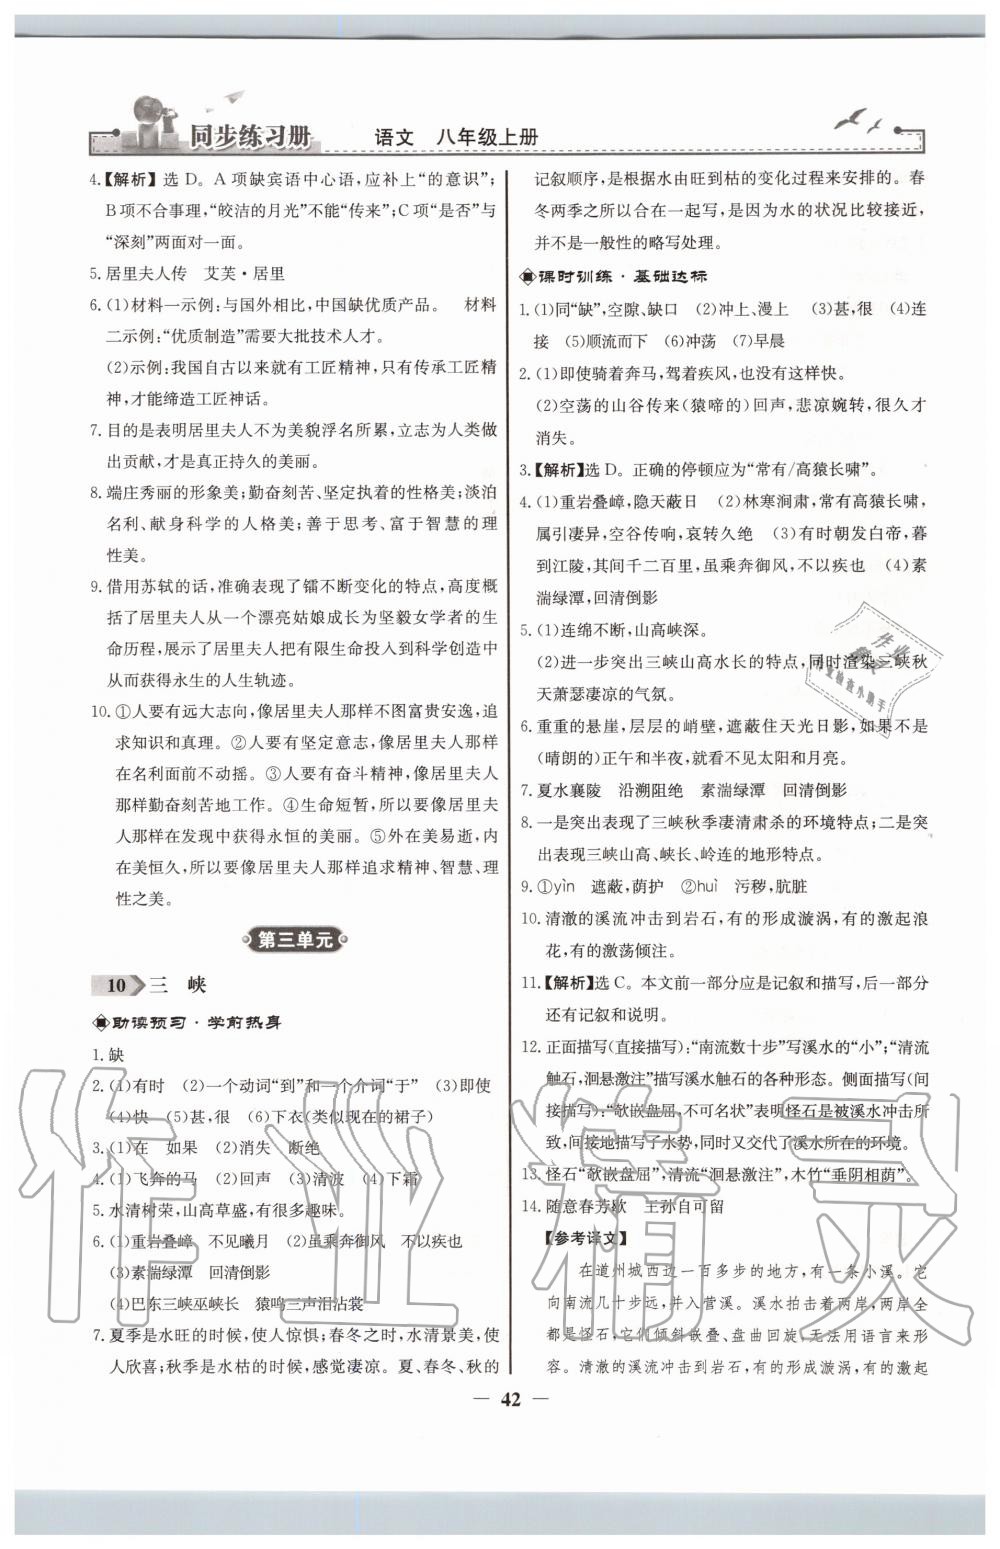 同步练习册 语文 八年级上册
4.【解析】选 D。A 项缺宾语中心语,应补上“的意识”;
B 项不合事理,“皎洁的月光”不能“传来”;C 项“是否”与
“深刻”两面对一面。
5. 居里夫人传 艾芙·居里
6. (1)材料一示例:与国外相比,中国缺优质产品。 材料
二示例:“优质制造”需要大批技术人才。
(2)示例:我国自古以来就有工匠精神,只有传承工匠精
神,才能缔造工匠神话。
7. 目的是表明居里夫人不为美貌浮名所累,立志为人类做
出贡献,才是真正持久的美丽。
8. 端庄秀丽的形象美;勤奋刻苦、坚定执着的性格美;淡泊
名利、献身科学的人格美;善于思考、富于智慧的理
性美。
9. 借用苏轼的话,准确表现了镭不断变化的特点,高度概
括了居里夫人从一个漂亮姑娘成长为坚毅女学者的生
命历程,展示了居里夫人把有限生命投入到科学创造中
从而获得永生的人生轨迹。
10. ①人要有远大志向,像居里夫人那样不图富贵安逸,追
求知识和真理。②人要有坚定意志,像居里夫人那样
在名利面前不动摇。③人要有奋斗精神,像居里夫人
那样勤奋刻苦地工作。④生命短暂,所以要像居里夫人
那样在发现中获得永恒的美丽。⑤外在美易逝,内
在美恒久,所以要像居里夫人那样追求精神、智慧、理
性之美。
第三单元
10 三 峡
助读预习·学前热身
1. 缺
2. (1)有时 (2)一个动词“到”和一个介词“于” (3)即使
(4)快 (5)甚,很 (6)下衣(类似现在的裙子)
3. (1)在 如果 (2)消失 断绝
4. (1)飞奔的马 (2)回声 (3)清波 (4)下霜
5. 水清树荣,山高草盛,有很多趣味。
6. (1)重岩叠嶂 不见曦月 (2)虽乘奔御风 不以疾也
(3)素湍绿潭 回清倒影
(4)巴东三峡巫峡长 猿鸣三声泪沾裳
7. 夏季是水旺的时候,使人惊惧;春冬之时,水清景美,使
人欣喜;秋季是水枯的时候,感觉凄凉。夏、春冬、秋的
记叙顺序,是根据水由旺到枯的变化过程来安排的。春
冬两季之所以合在一起写,是因为水的状况比较接近,
并不是一般性的略写处理。
课时训练·基础达标
1. (1)同“缺”,空隙、缺口 (2)冲上、漫上 (3)甚,很 (4)连
接 (5)顺流而下 (6)冲荡 (7)早晨
2. (1)即使骑着奔马,驾着疾风,也没有这样快。
(2)空荡的山谷传来(猿啼的)回声,悲凉婉转,很久才
消失。
3.【解析】选 D。正确的停顿应为“常有/高猿长啸”。
4. (1)重岩叠嶂,隐天蔽日 (2)林寒涧肃,常有高猿长啸,
属引凄异,空谷传响,哀转久绝 (3)有时朝发白帝,暮
到江陵,其间千二百里,虽乘奔御风,不以疾也 (4)素
湍绿潭,回清倒影
5. (1)连绵不断,山高峡深。
(2)进一步突出三峡山高水长的特点,同时渲染三峡秋
天萧瑟凄凉的气氛。
6. 重重的悬崖,层层的峭壁,遮蔽住天光日影,如果不是
(晴朗的)正午和半夜,就看不见太阳和月亮。
7. 夏水襄陵 沿溯阻绝 素湍绿潭 回清倒影
8. 一是突出表现了三峡秋季凄清肃杀的环境特点;二是突
出表现三峡山高、峡长、岭连的地形特点。
9. ①yìn 遮蔽,荫护 ②huì 污秽,肮脏
10. 清澈的溪流冲击到岩石,有的形成漩涡,有的激起浪
花,有的激荡倾注。
11.【解析】选 C。本文前一部分应是记叙和描写,后一部分
还有记叙和说明。
12. 正面描写(直接描写):“南流数十步”写溪水的“小”;“清流
触石,洄悬激注”描写溪水触石的各种形态。侧面描写(间
接描写):“欹嵌盘屈,不可名状”表明怪石是被溪水冲击所
致,间接地描写了水势,同时又交代了溪水所在的环境。
13. 怪石“欹嵌盘屈”,清流“洄悬激注”,木竹“垂阴相荫”。
14. 随意春芳歇 王孙自可留
【参考译文】
在道州城西边一百多步的地方,有一条小溪。它
向南流几十步远,并入营溪。溪水拍击着两岸,两岸全
都是怪石,它们倾斜嵌叠、盘曲回旋,无法用语言来形
容。清澈的溪流冲击到岩石,有的形成漩涡,有的激起
42
作业精灵
作业
精灵
作业检查小助手